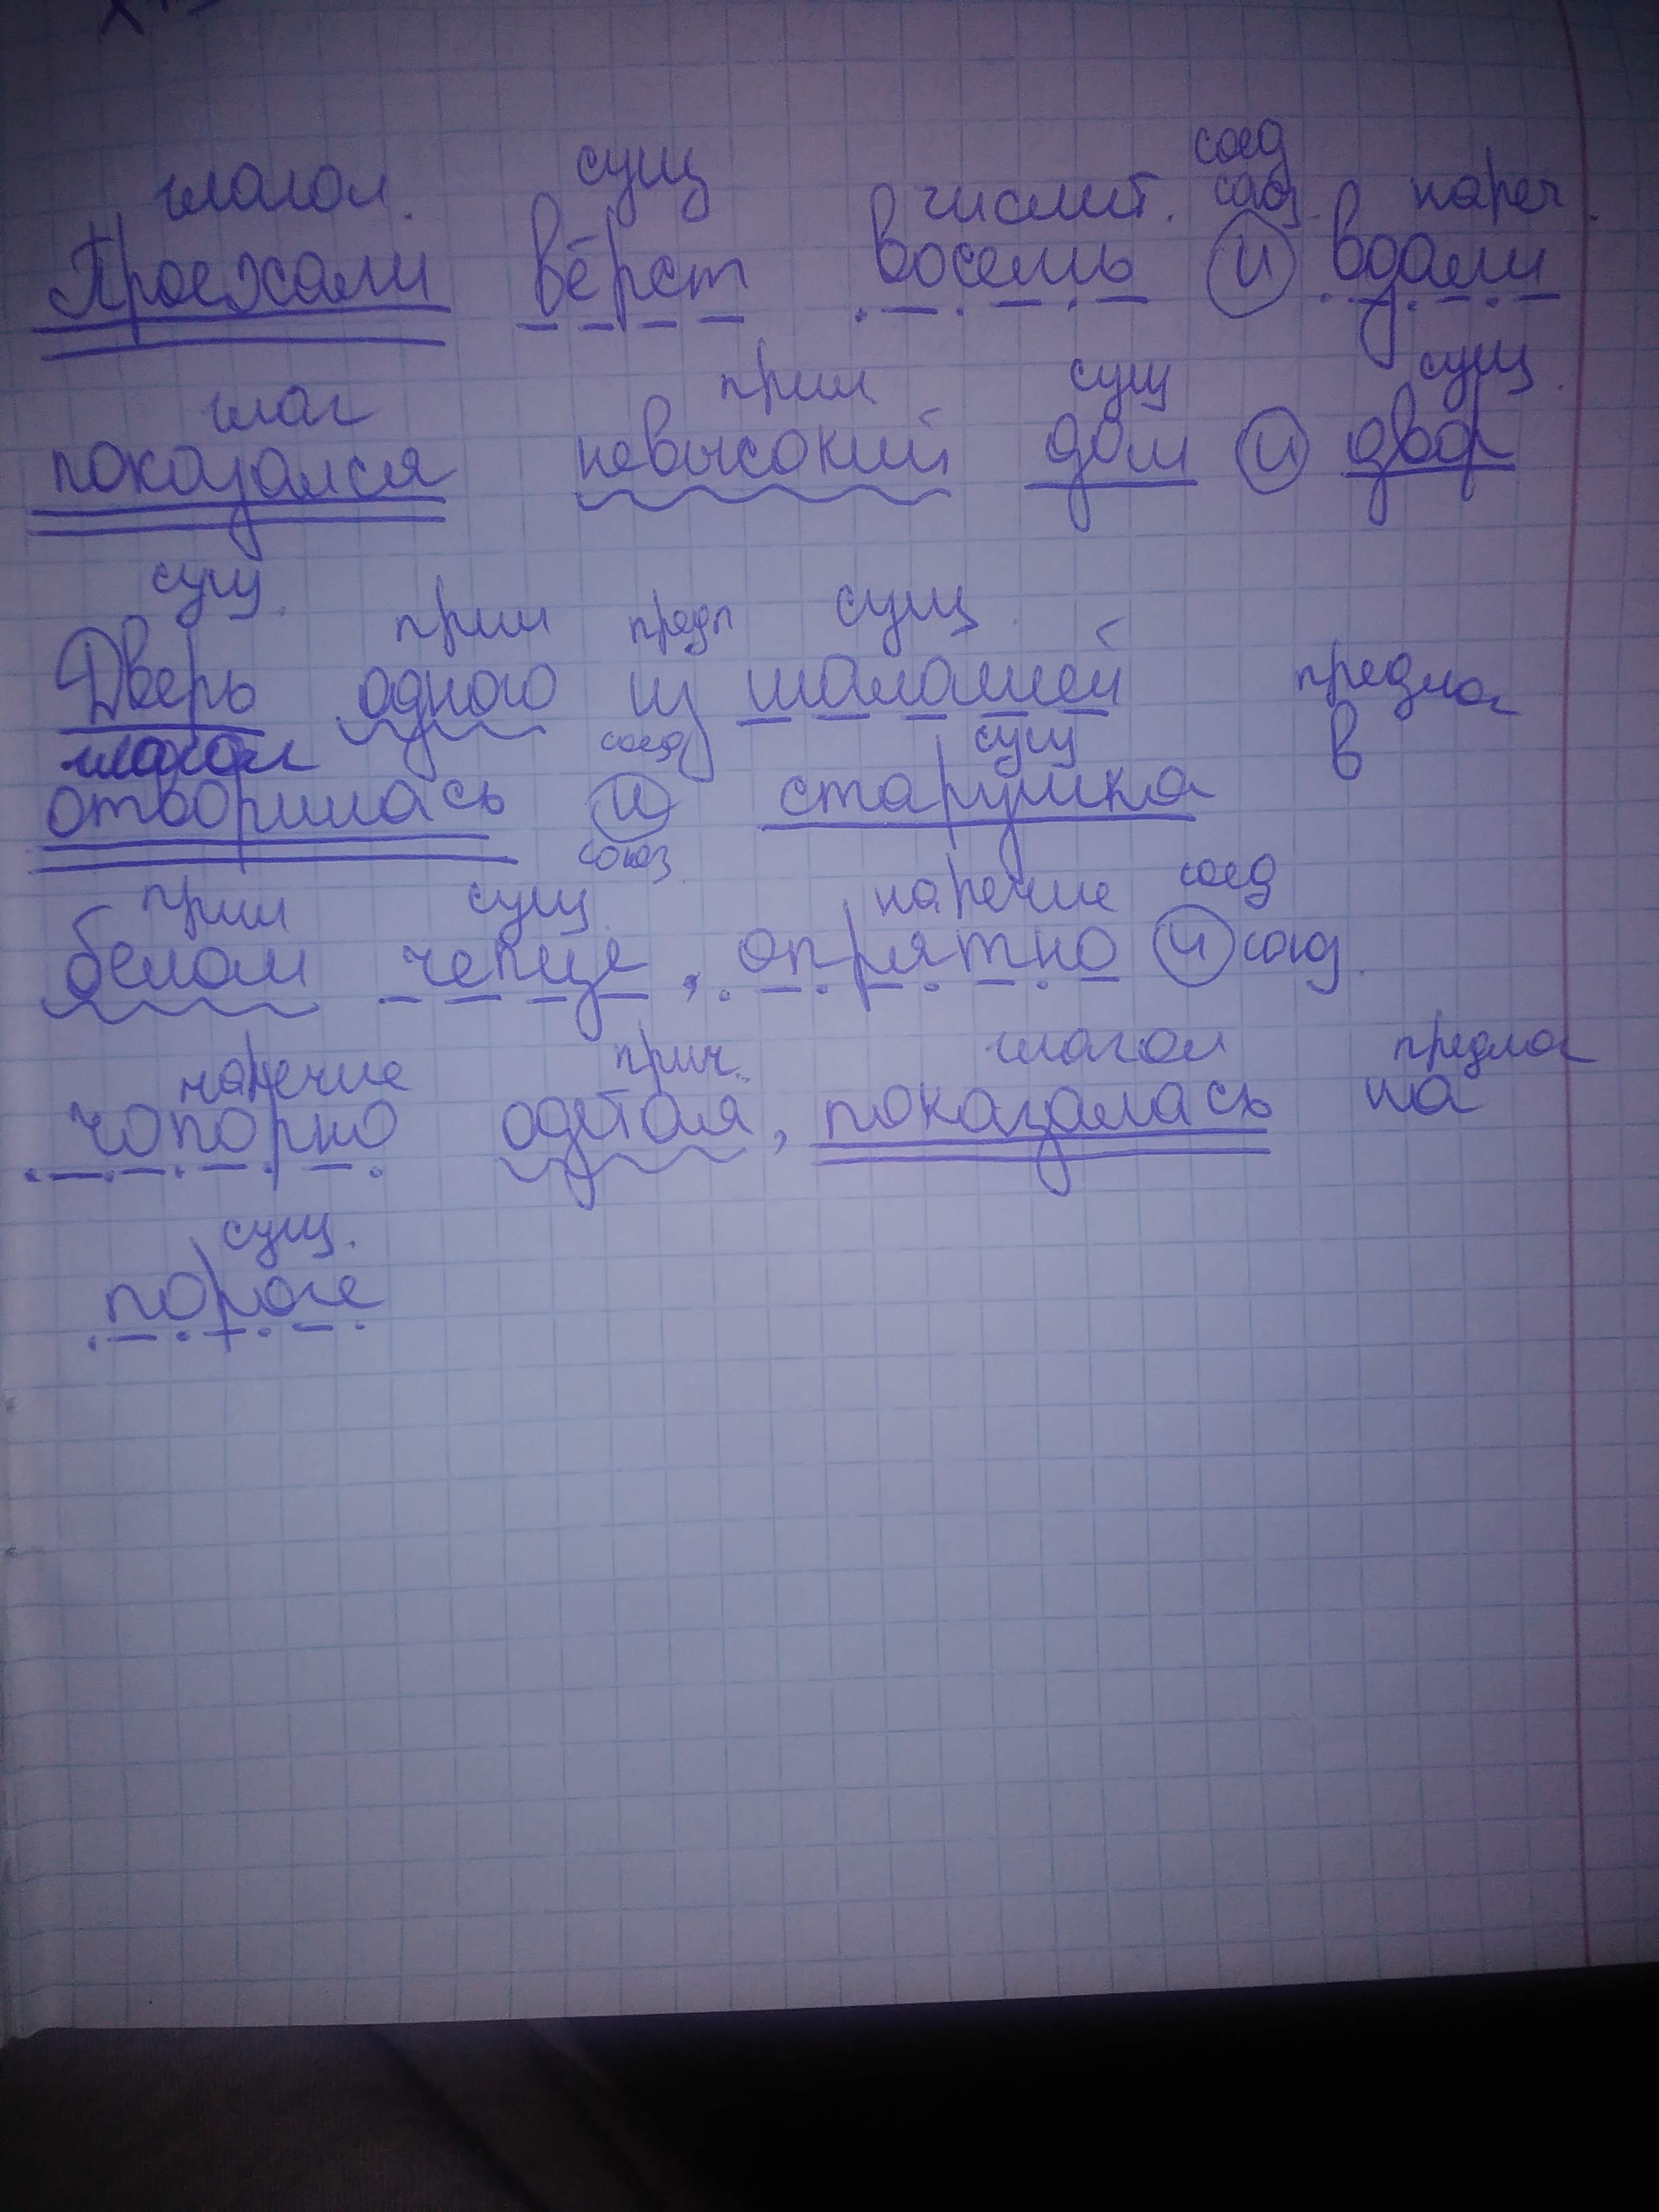 глагол. сущ числит. соед союз. нареч.
Проехали вёрст восемь и вдали
глаг прил сущ сущ.
показался невысокий дом и двор
сущ. прил предл сущ.
Дверь одного из шалашей предлог в
глагол соед сущ
отворилась и старушка
союз.
прил сущ. наречие соед
белом чепце, опрятно и союз.
наречие прич. глагол предлог
чопорно одетая, показалась на
сущ.
пороге